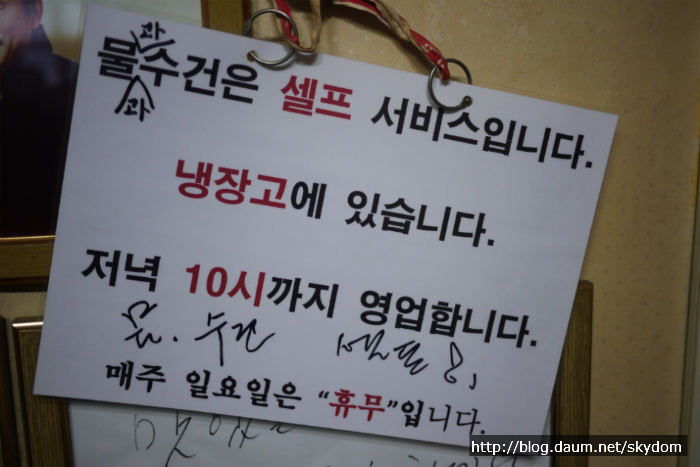 과
물수건은 셀프 서비스입니다.
과
냉장고에 있습니다.
저녁 10시까지 영업합니다.
매주 일요일은 “휴무”입니다.
http://blog.daum.net/skydom